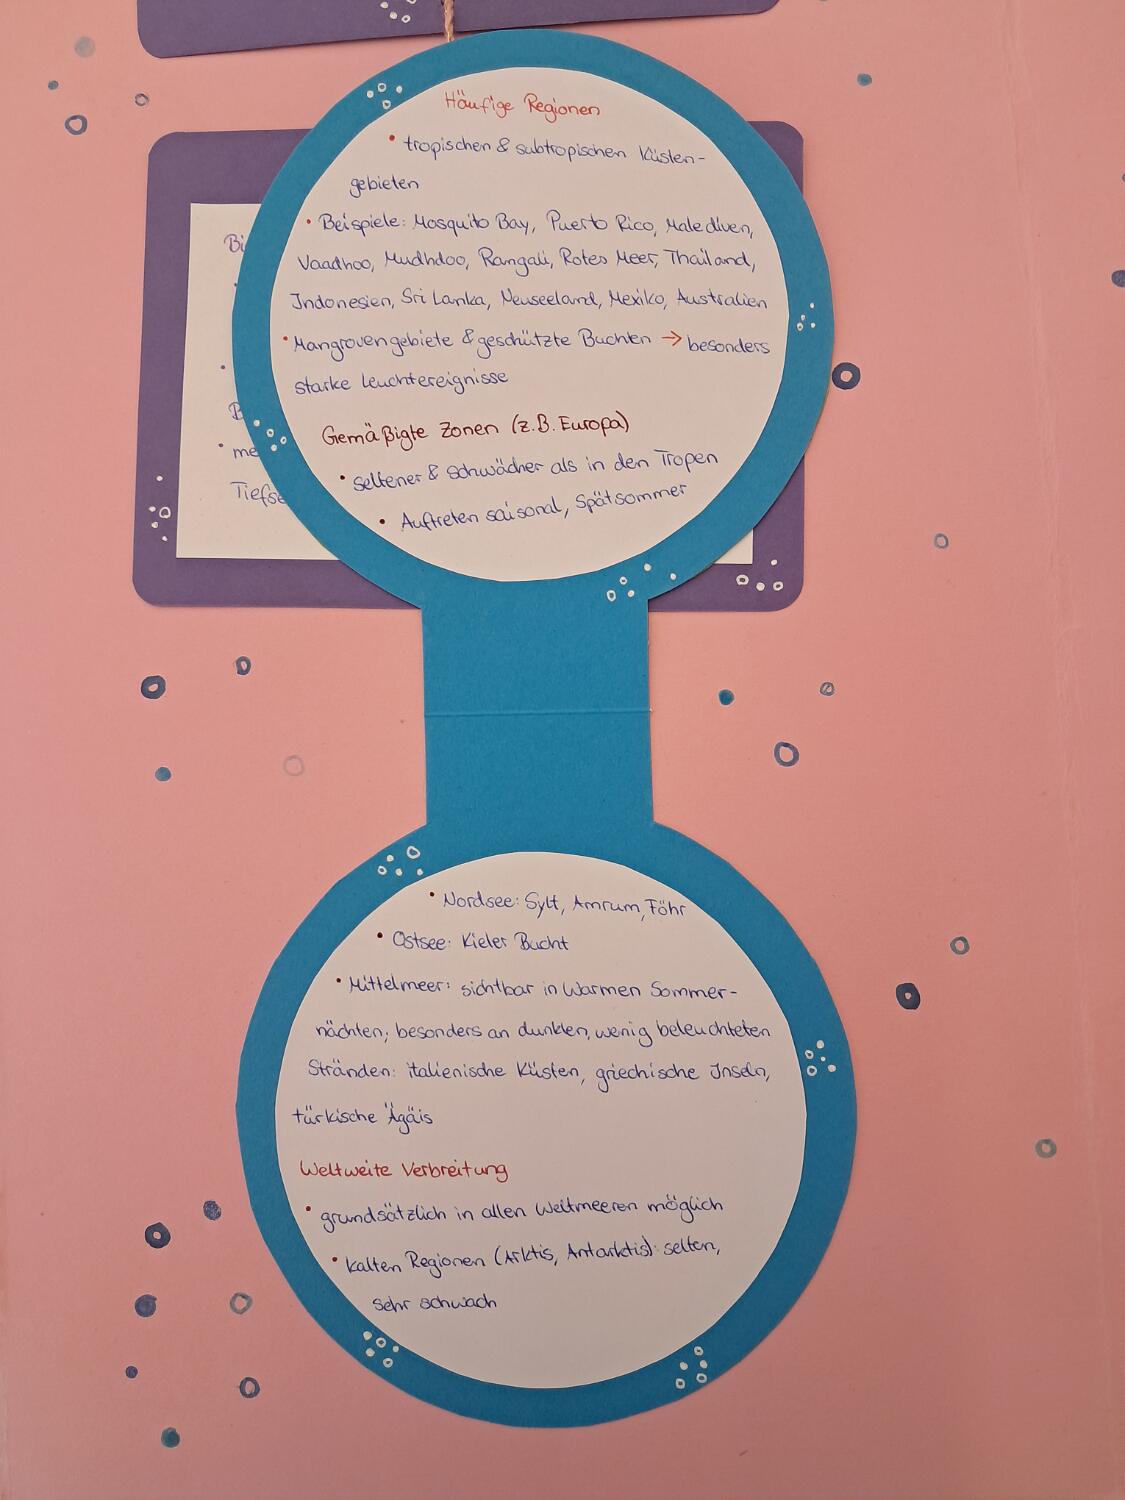 Häufige Regionen
• tropischen & subtropischen Küsten-
gebieten
• Beispiele: Mosquito Bay, Puerto Rico, Malediven,
Vaadhoo, Mudhdoo, Rangali, Rotes Meer, Thailand,
Indonesien, Sri Lanka, Neuseeland, Mexiko, Australien
• Mangrovengebiete & geschützte Buchten → besonders
starke Leuchtereignisse
Gemäßigte Zonen (z.B. Europa)
• seltener & schwächer als in den Tropen
• Auftreten saisonal, Spätsommer
Bi
B
• me
Tiefse
• Nordsee: Sylt, Amrum, Föhr
• Ostsee: Kieler Bucht
• Mittelmeer: sichtbar in Warmen Sommer-
nächten; besonders an dunklen, wenig beleuchteten
Stränden: italienische Küsten, griechische Inseln,
türkische Ägäis
Weltweite Verbreitung
• grundsätzlich in allen Weltmeeren möglich
• kalten Regionen (Arktis, Antarktis): selten,
sehr schwach